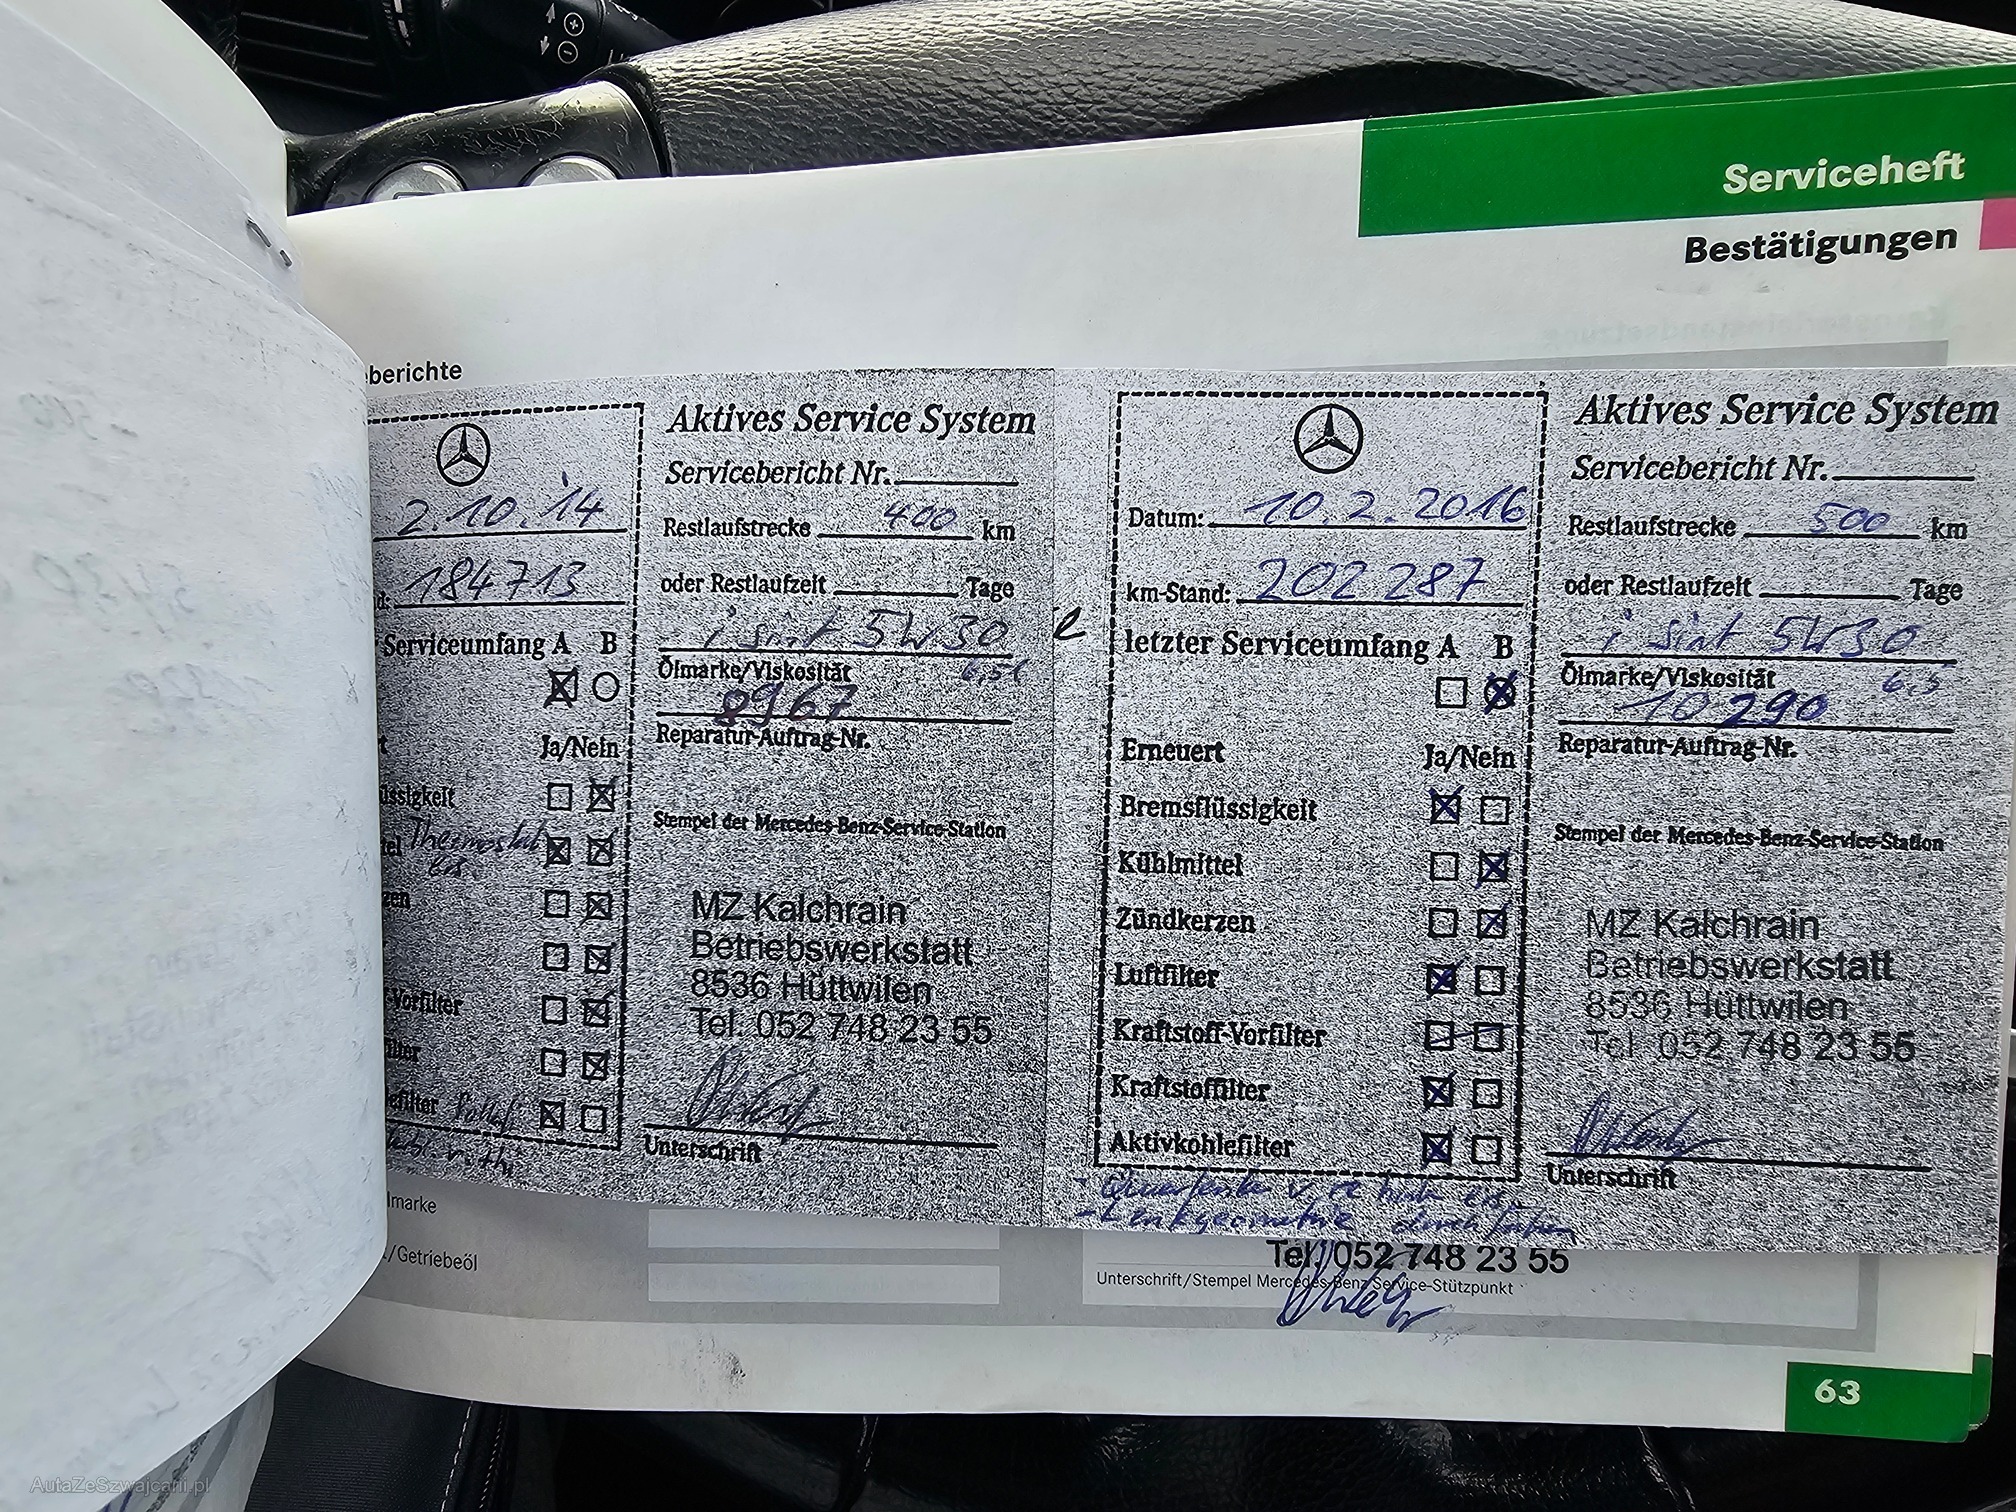 Serviceheft
Bestätigungen
berichte
2.10.'14
184713
Serviceumfang A B
Ja/Nein
üssigkeit
Thermostat
ers.
zen
-Vorfilter
filter
efilter
Aktives Service System
Servicebericht Nr.
Restlaufstrecke 400 km
oder Restlaufzeit Tage
5W30
Ölmarke/Viskosität 6,5l
8967
Reparatur-Auftrag-Nr.
Stempel der Mercedes-Benz-Service-Station
MZ Kalchrain
Betriebswerkstatt
8536 Hüttwilen
Tel. 052 748 23 55
Unterschrift
Datum: 10.2.2016
km-Stand: 202287
letzter Serviceumfang A B
Erneuert Ja/Nein
Bremsflüssigkeit
Kühlmittel
Zündkerzen
Luftfilter
Kraftstoff-Vorfilter
Kraftstoffilter
Aktivkohlefilter
- Lenkgeometrie
Aktives Service System
Servicebericht Nr.
Restlaufstrecke 500 km
oder Restlaufzeit Tage
5W30
Ölmarke/Viskosität 6.5
10290
Reparatur-Auftrag-Nr.
Stempel der Mercedes-Benz-Service-Station
MZ Kalchrain
Betriebswerkstatt
8536 Hüttwilen
Tel. 052 748 23 55
Unterschrift
lmarke
./Getriebeöl
Tel. 052 748 23 55
Unterschrift/Stempel Mercedes-Benz Service-Stützpunkt
63
AutaZeSzwajcarii.pl